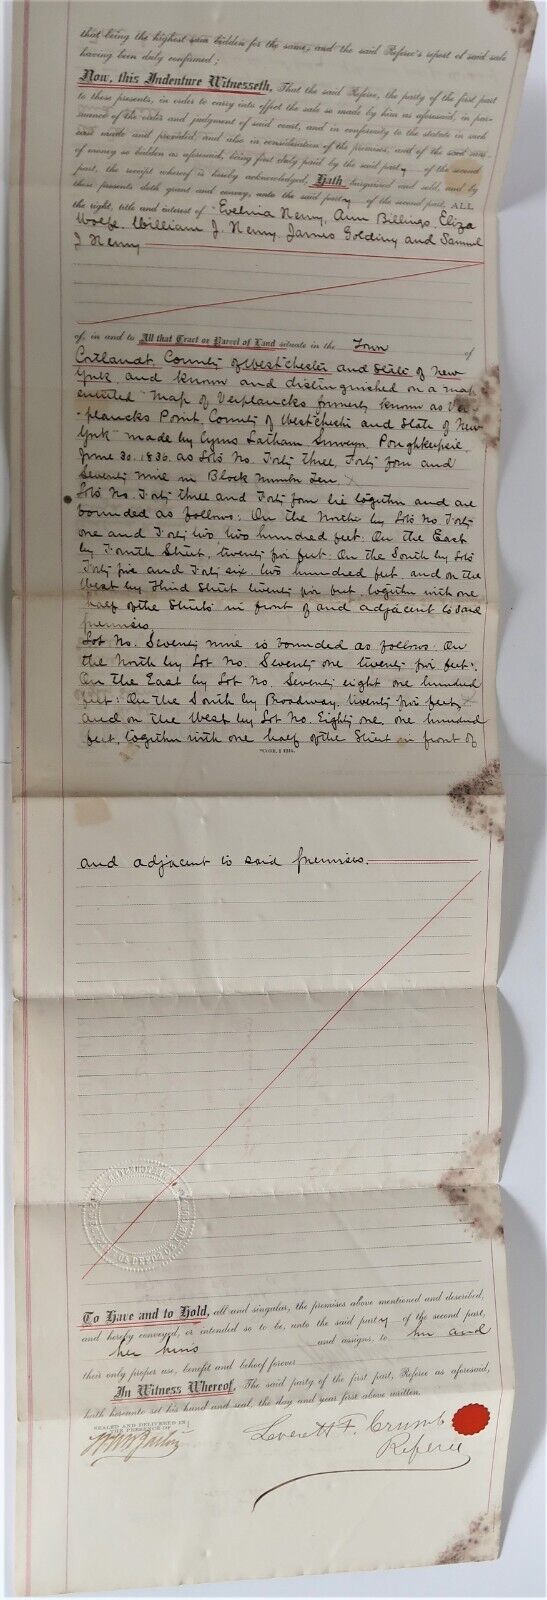 that being the highest sum bidden for the same, and the said Referee's report of said sale
having been duly confirmed;
Now, this Indenture Witnesseth, That the said Referee, the party of the first part
to these presents, in order to carry into effect the sale so made by him as aforesaid, in pur-
suance of the order and judgment of said court, and in conformity to the statute in such
case made and provided, and also in consideration of the premises, and of the said sum
of money so bidden as aforesaid, being first duly paid by the said party of the second
part, the receipt whereof is hereby acknowledged, Hath bargained and sold, and by
these presents doth grant and convey, unto the said party of the second part, ALL
the right, title and interest of Evelina Henny, Ann Billings, Eliza
Wolfe, William J. Henny, James Golding and Samuel
J Henny
of, in and to All that Tract or Parcel of Land situate in the Town of
Cortlandt, County of Westchester and State of New
York, and known and distinguished on a map
entitled "Map of Verplancks formerly known as Ver-
-plancks Point, County of Westchester and State of New
York" made by Cyrus Latham Surveyor, Poughkeepsie,
June 30, 1836, as Lots No. Forty three, Forty four and
Seventy nine in Block Number Ten.
Lots No. Forty three and Forty four lie together and are
bounded as follows: On the North by Lots No Forty
one and Forty two two hundred feet. On the East
by Fourth Street, twenty five feet. On the South by Lots
Forty five and Forty six two hundred feet, and on the
West by Third Street twenty five feet, together with one
half of the Streets in front of and adjacent to said
premises.
Lot No. Seventy nine is bounded as follows. On
the North by Lot No. Seventy one twenty five feet:
On the East by Lot No. Seventy eight one hundred
feet: On the South by Broadway, twenty five feet,
and on the West by Lot No. Eighty one, one hundred
feet, together with one half of the Street in front of
and adjacent to said premises.
To Have and to Hold, all and singular, the premises above mentioned and described,
and hereby conveyed, or intended so to be, unto the said party of the second part,
her heirs and assigns, to her and
their only proper use, benefit and behoof forever
In Witness Whereof, The said party of the first part, Referee as aforesaid,
hath hereunto set his hand and seal, the day and year first above written.
SEALED AND DELIVERED IN
THE PRESENCE OF
Leverett F. Crumb
Referee